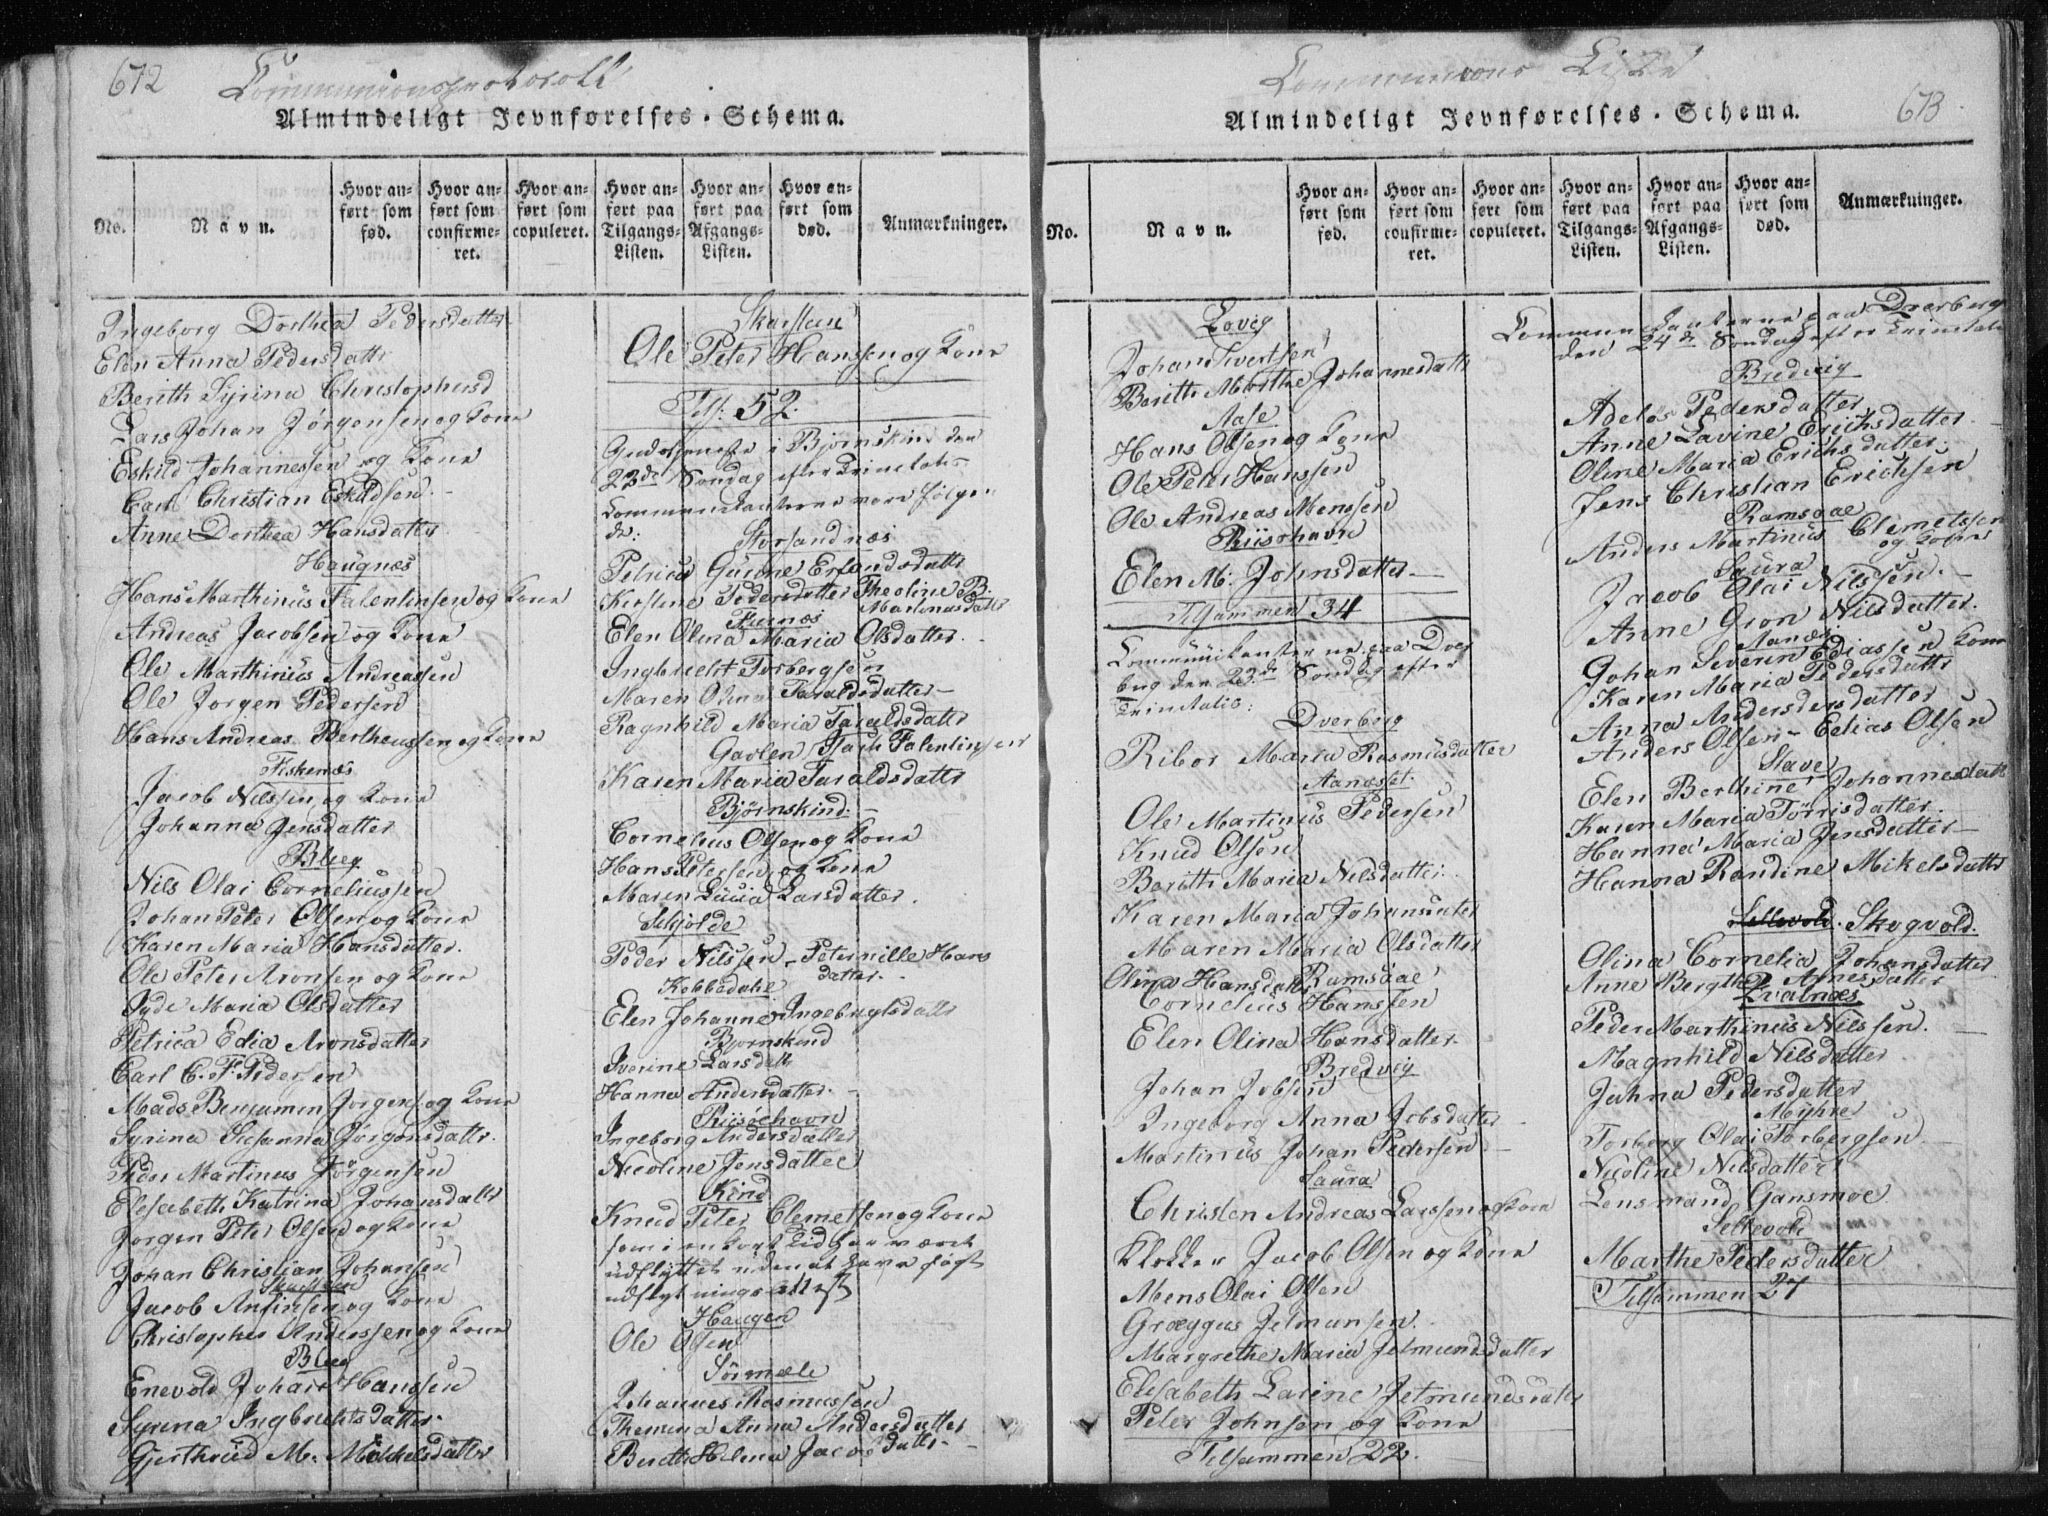 672
Communionsprotocoll
Almindeligt Jevnførelses-Schema.
No.
Navn.
Hvor anført som fød.
Hvor anført som confirmeret.
Hvor anført som copuleret.
Hvor anført paa Tilgangs-Listen.
Hvor anført paa Afgangs-Listen.
Hvor anført som død.
Anmærkninger.
Ingeborg Dorthea Pedersdatter
Elen Anna Pedersdattr
Berith Syrina Christophersd
Lars Johan Jørgensen og Kone
Eskild Johannessen og Kone
Carl Christian Eskildsen
Anne Dorthea Hansdattr
Haugnæs
Hans Marthinus Falentinsen og Kone
Andreas Jacobsen og Kone
Ole Marthinius Andreassen
Ole Jørgen Pedersen
Hans Andreas Bertheussen og Kone
Fiskenæs
Jacob Nilssen og Kone
Johanna Jensdatter
Bleg
Nils Olai Corneliussen
Johan Peter Olsen og Kone
Karen Maria Hansdatter.
Ole Peter Aronsen og Kone
Maria Olsdatter
Petrica Edia Aronsdatter
Carl C. F. Pedersen
Mads Benjamin Jørgens og Kone
Syrina Susanna Jørgensdattr.
Peder Martinus Jørgensen
Elesabeth Katrina Johansdattr
Jørgen Peter Olsen og Kone
Johan Christian Johansen
Skarsteen
Jacob Anfinsen og Kone
Christopher Anderssen og Kone
Bleg
Enevold Johan Hanssen
Syrina Ingbrichtsdatter.
Gjerthrud M. Mikkelsdatter
Skarsteen
Ole Peter Hanssen og Kone
Tils: 52.
Gudstjeneste i Bjørnskind den
22de Søndag efter Trinitatis
Communikanterne vare følgen
de:
Storsandnæs
Petrica Gurine Erlandsdattr
Kirstene Pedersdatter Theoline B.
Martinusdattr
Furnæs
Elen Olina Maria Olsdatter.
Ingbricht Torbergsen
Maren Olina Taraldsdatter
Ragnhild Maria Taraldsdattr
Gavlen Falentinsen
Karen Maria Taraldsdattr
Bjørnskind
Cornelius Olsen og Kone
Hans Petersen og Kone
Maren Lucia Larsdatter.
Schjolde
Peder Nilssen - Peternille Hans
datter.
Kobbedahl
Elen Johanne Ingebrigtsdattr
Bjørnskind
Iverine Larsdattr
Hanna Andersdatter.
Riisøehavn
Ingeborg Andersdatter
Nicoline Jensdatter
Kind
Knud Peter Clemetsen og Kone
som i en kort Tid har været
udflyttet uden at have søgt
udflytnings attest
Haugen
Ole Olsen
Sørmæle
Johannes Rasmussen
Themina Anna Andersdatter
Berith Helena Jacobsdattr
Communions Liste
Almindeligt Jevnførelses-Schema.
673
No.
Navn.
Hvor anført som fød.
Hvor anført som confirmeret.
Hvor anført som copuleret.
Hvor anført paa Tilgangs-Listen.
Hvor anført paa Afgangs-Listen.
Hvor anført som død.
Anmærkninger.
Lovig
Johan Ivertsen
Berith Marthe Johannesdattr
Aase
Hans Olsen og Kone
Ole Peter Hanssen
Ole Andreas Monssen
Riisøhavn
Elen M. Johnsdatter
Tilsammen 34
Communikanterne paa Dver
berg den 23de Søndag efter
Trinitatis:
Dverberg
Ribor Maria Rasmusdatter
Aanæsset
Ole Martinus Pedersen
Knud Olsen
Berith Maria Nilsdatter
Karen Maria Johansdatter
Maren Maria Olsdatter
Olina Hansdattr Ramsaae
Cornelius Hanssen
Elen Olina Hansdatter.
Bredvig
Johan Jobsen
Ingeborg Anna Jobsdatter
Martinus Johan Pedersen
Saura
Christen Andreas Larssen og Kone
Klokker Jacob Olsen og Kone
Mons Olai Olsen
Græggus Jetmunsen.
Margrethe Maria Jetmundsdatter
Elisabeth Larine Jetmundsdattr
Peter Johnsen og Kone
Tilsammen 22.
Communikanterne paa Dverberg
den 24de Søndag efter Trinitatis
Bredvig
Adelos Pedersdatter
Anne Lavine Erichsdatter
Oline Maria Erichsdatter.
Jens Christian Erichsen
Ramsaae
Anders Martinus Clemetssen
og Kone
Saura
Jacob Olai Nilssen.
Anne Gron Nilsdatter.
Aanæs
Johan Severin Ediassen Kone
Karen Maria Pedersdattr
Anna Andersdersdatter
Anders Olsen - Edias Olsen
Stave
Elen Berthine Johannesdattr
Karen Maria Torrisdatter.
Hanna Maria Jensdatter
Hanna Randine Mikelsdattr
Sellevold. Skogvold.
Olina Cornelia Johansdatter
Anne Bergthe Arnesdatter
Kvalnæs
Peder Marthinus Nilssen.
Magnhild Nilsdatter
Jahna Pedersdatter
Myhre
Torberg Olai Torbergsen
Nicoline Nilsdatter
Lensmand Gansmoe
Sellevold
Marthe Pedersdatter
Tilsammen 27